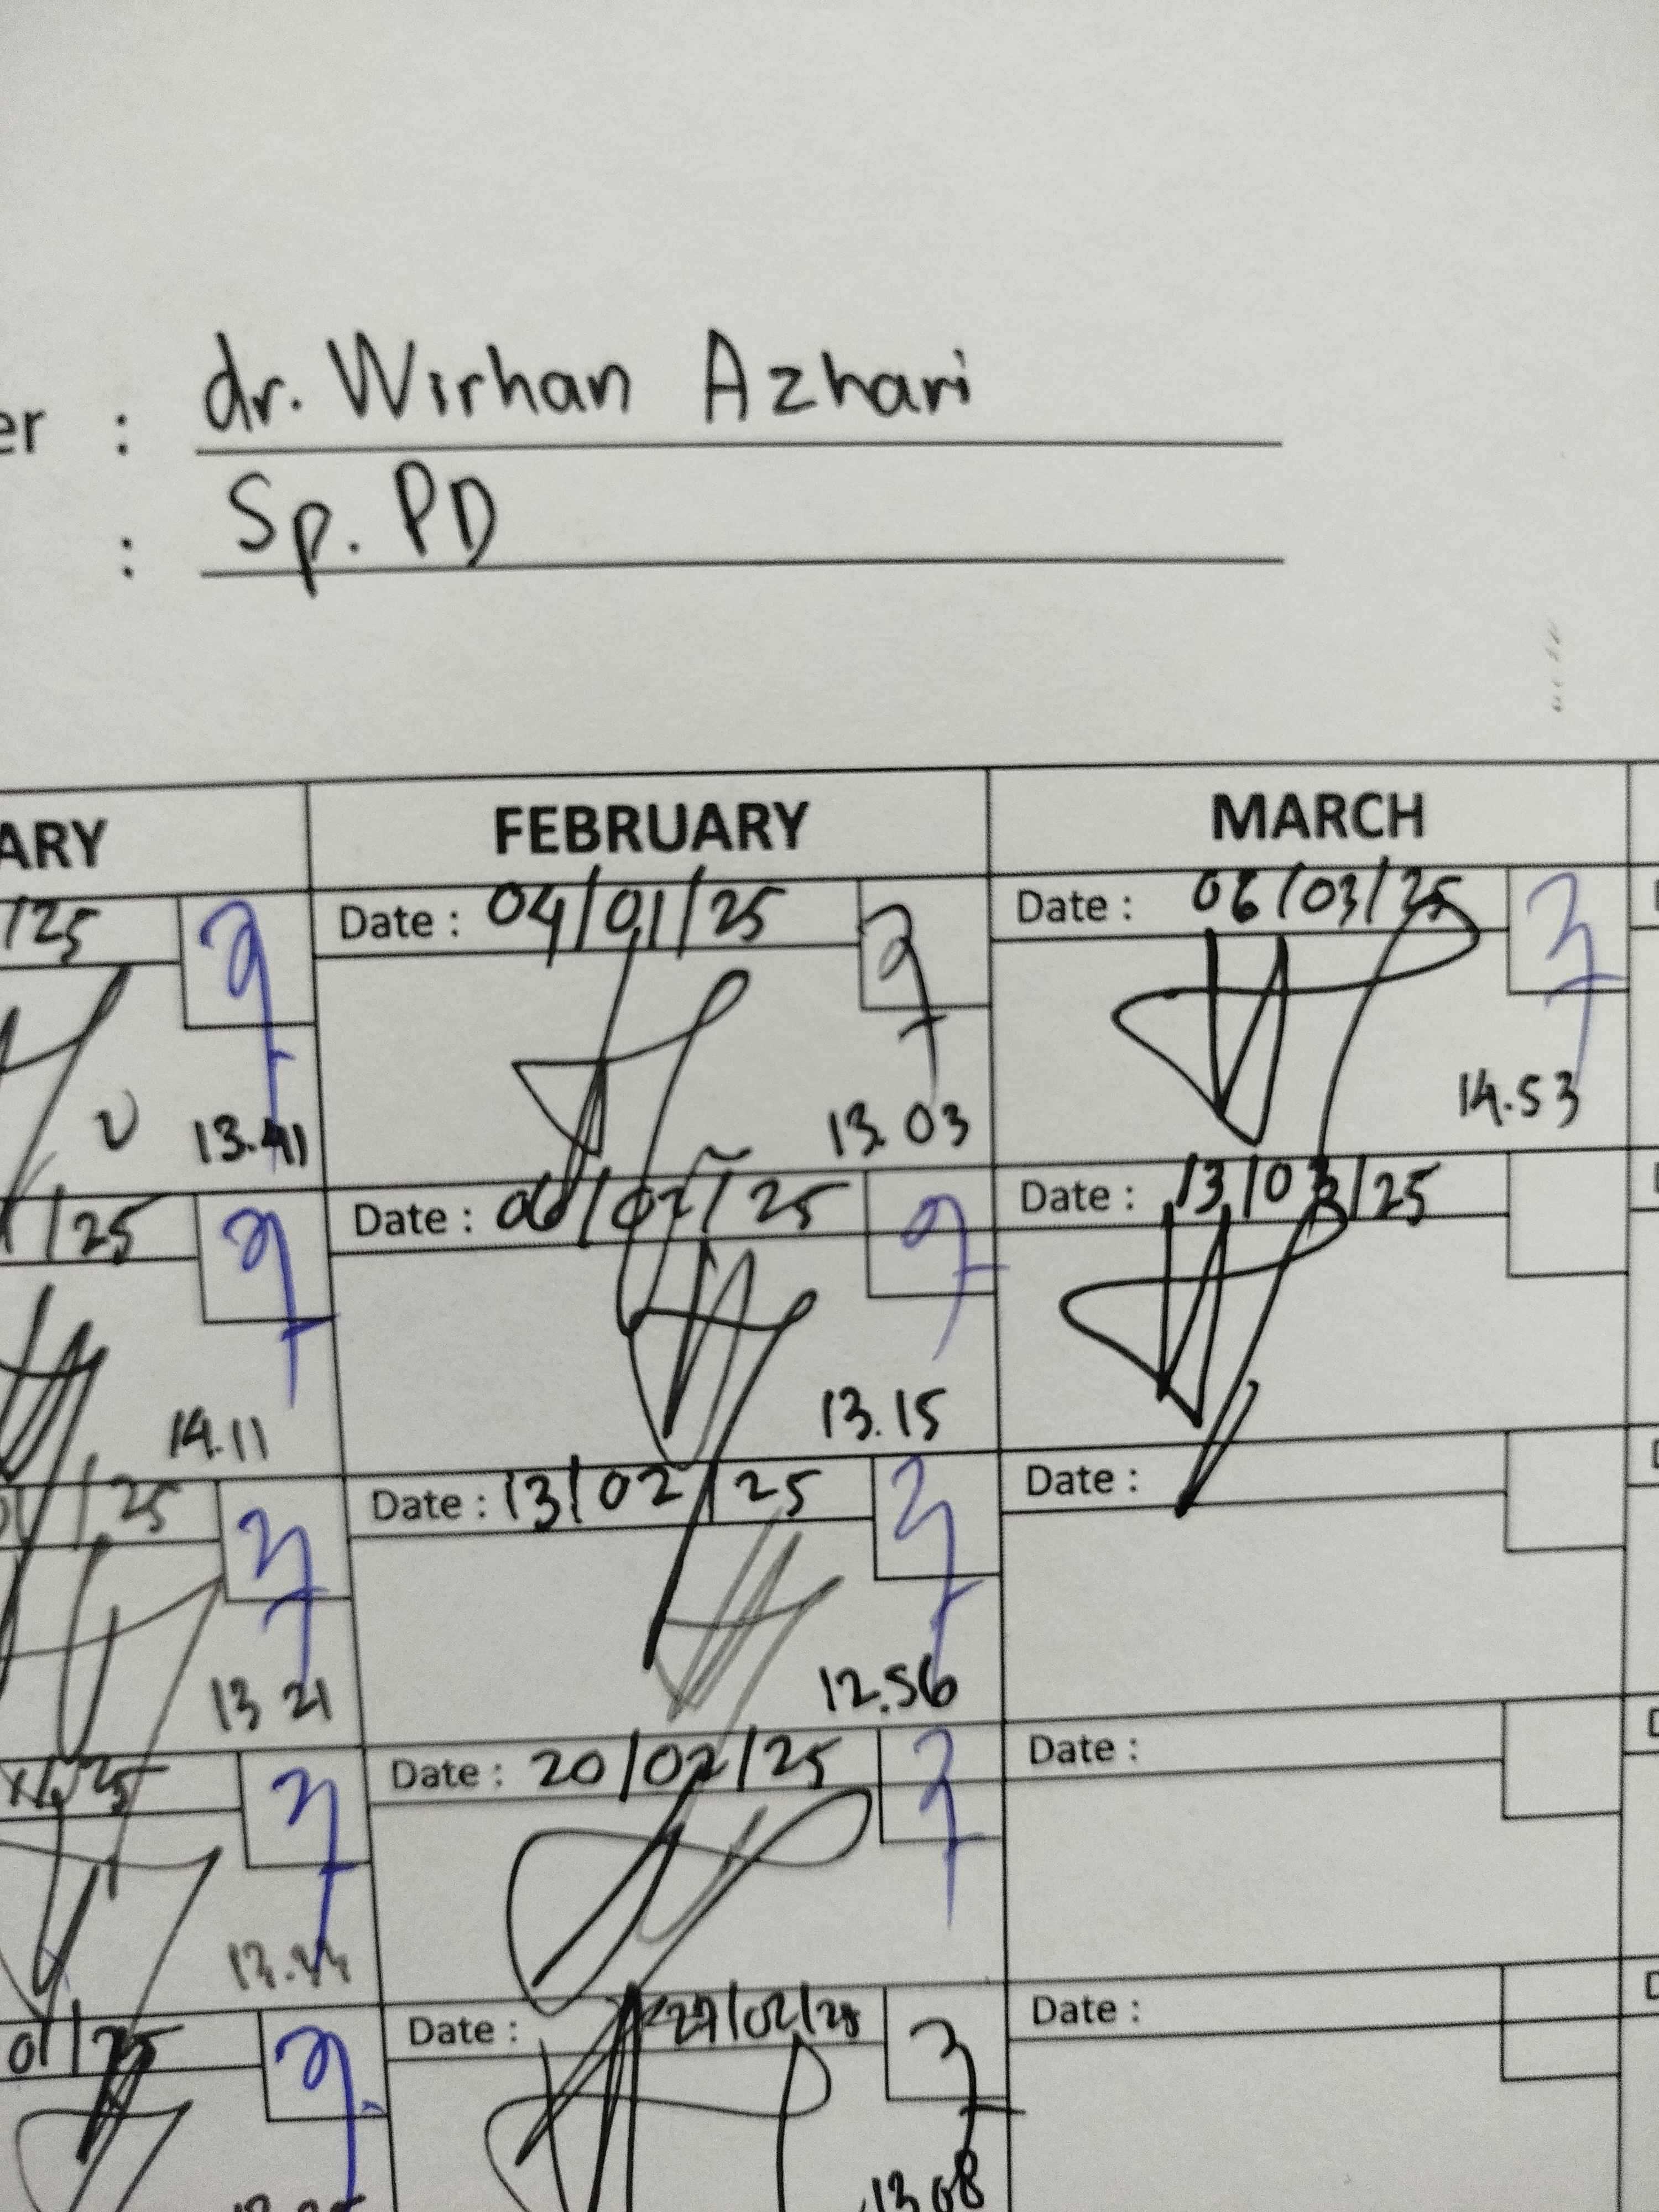 er : dr. Wirhan Azhari
: Sp. PD
ARY FEBRUARY MARCH
/25 Date : 04/01/25 Date : 06/03/25
13.41 13.03 14.53
/25 Date : 06/02/25 Date : 13/03/25
14.11 13.15
/25 Date : 13/02/25 Date :
13 21 12.56
25 Date : 20/02/25 Date :
01/25 Date : 27/02/25 Date :
13 08